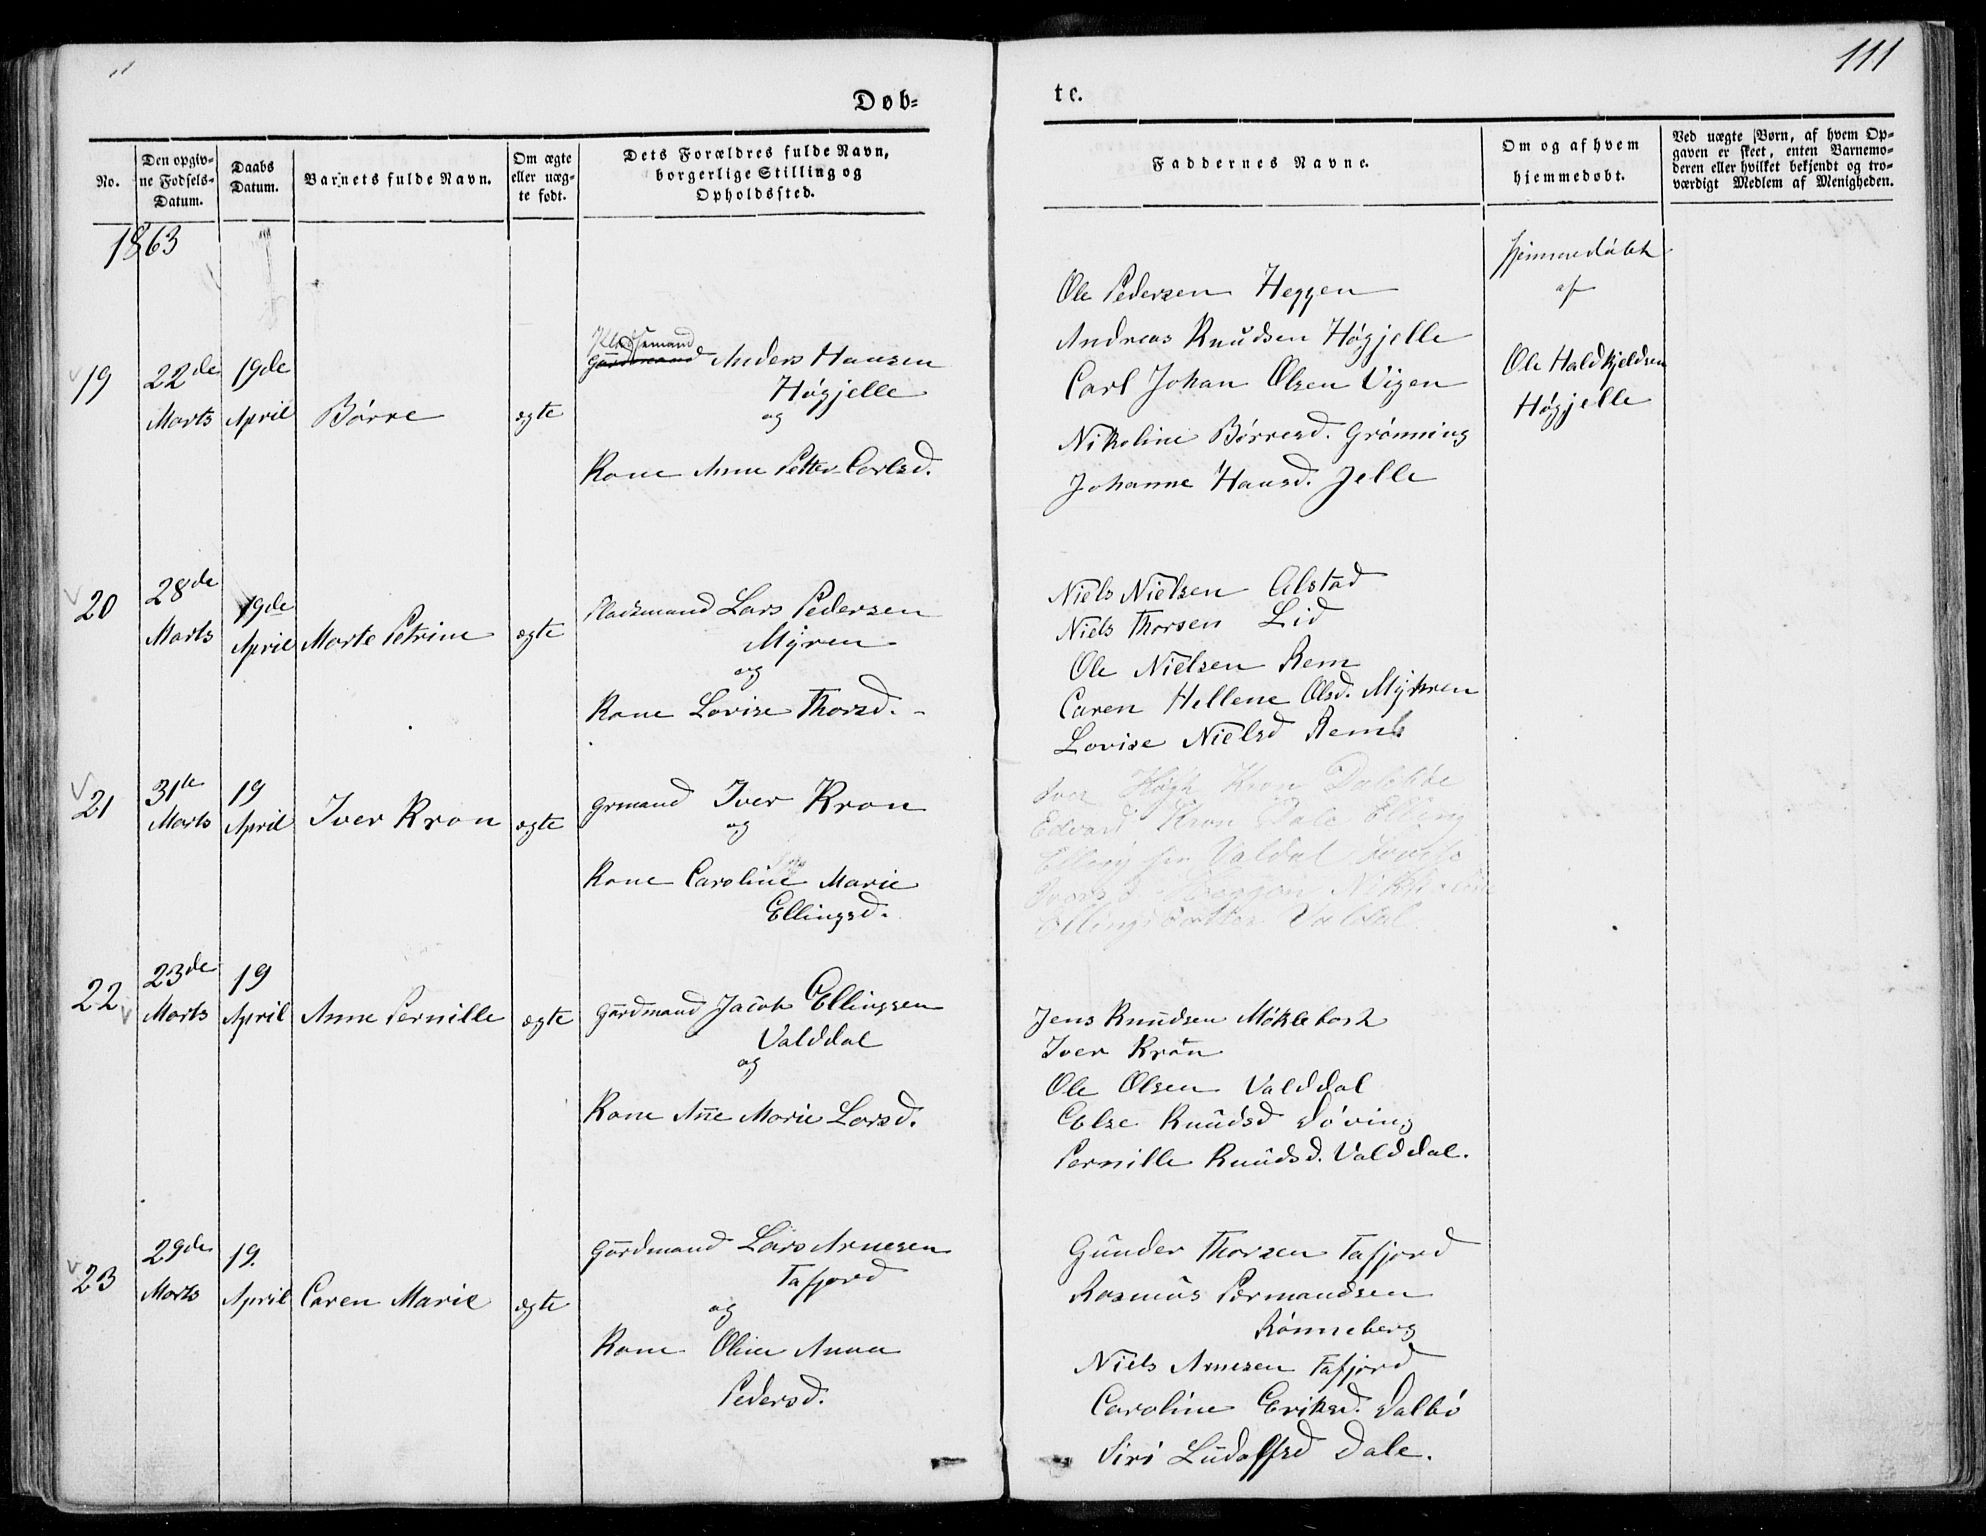 111
Døb-
te.
No.
Den opgiv-
ne Fødsels-
Datum.
Daabs
Datum.
Barnets fulde Navn.
Om ægte
eller uæg-
te født.
Dets Forældres fulde Navn,
borgerlige Stilling og
Opholdssted.
Faddernes Navne.
Om og af hvem
hjemmedøbt.
Ved uægte Børn, af hvem Op-
gaven er skeet, enten Barnemo-
deren eller hvilket bekjendt og tro-
værdigt Medlem af Menigheden.
1863
19
22de
Marts
19de
April
Børre
ægte
Pladsemand
Gårdmand Anders Hansen
Høgjelle
og
Kone Anne Petter Carlsd.
Ole Pedersen Heggen
Andreas Knudsen Høgjelle
Carl Johan Olsen Vigen
Nikoline Børresd. Grønning
Johanne Hansd. Jelle
hjemmedøbt
af
Ole Haldkjeldsen
Høgjelle
20
28de
Marts
19de
April
Marte Petrine
ægte
Pladsmand Lars Pedersen
Myren
og
Kone Lovise Thorsd.
Niels Nielsen Alstad
Niels Thorsen Lid
Ole Nielsen Rem
Caren Hellene Olsd. Myhren
Lovise Nielsd Rem
21
31te
Marts
19
April
Iver Kron
ægte
Grmand Iver Kron
og
Kone Caroline Marie
Ellingsd.
Iver Høgh Kron Dalsbøe
Edvard Kron Dale Elling
Valdal Lovise
Ellingsdatter Valdal
22
23de
Marts
19
April
Anne Pernille
ægte
Gårdmand Jacob Ellingsen
Valddal
og
Kone Añe Marie Larsd.
Jens Knudsen Møklebost
Iver Kron
Ole Olsen Valddal
Else Knudsd Døving
Pernille Knudsd. Valddal.
23
29de
Marts
19.
April
Caren Marie
ægte
Gårdmand Lars Arnesen
Tafjord
og
Kone Oline Anna
Pedersd.
Gunder Thorsen Tafjord
Rasmus Permandsen
Rønneberg
Niels Arnesen Tafjord
Caroline Eriksd. Dalbø
Siri Ludolfsd Dale.